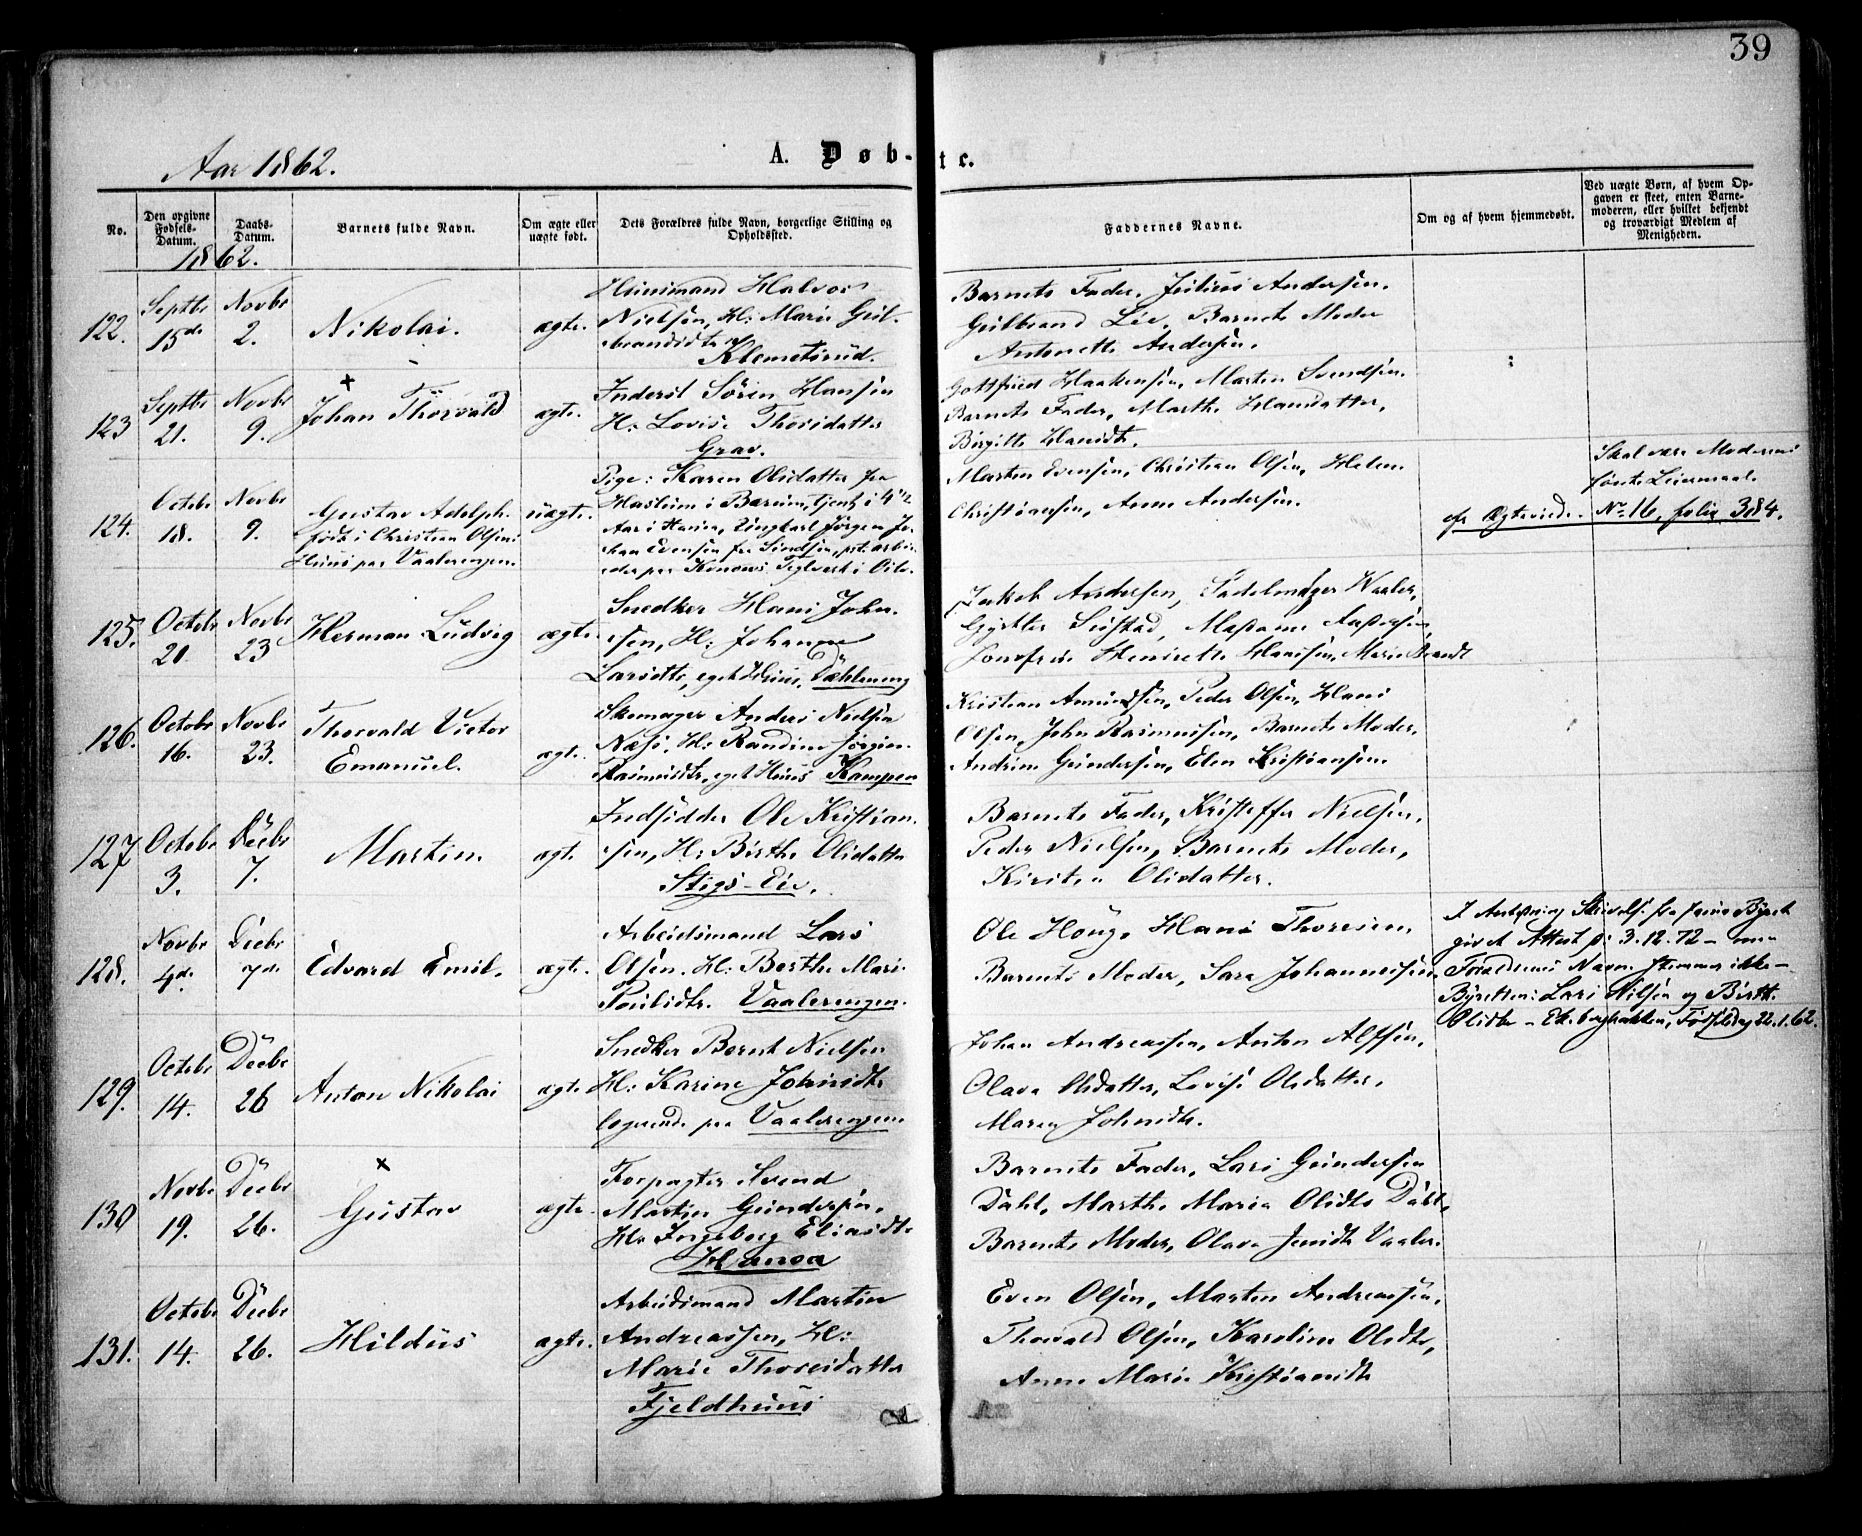 39
Aar 1862.
A. Døb-te.
No.
Den opgivne Fødsels-Datum.
Daabs-Datum.
Barnets fulde Navn.
Om ægte eller uægte født.
Dets Forældres fulde Navn, borgerlige Stilling og Opholdssted.
Faddernes Navne.
Om og af hvem hjemmedøbt.
Ved uægte Børn, af hvem Opgaven er skeet, enten Barnemoderen, eller hvilket bekjendt og troværdigt Medlem af Menigheden.
1862.
122.
Septbr 15de
Novbr 2.
Nikolai.
ægte.
Huusmand Halvor
Nielsen, H: Marie Gul-
brandsdtr
Klemetsrud.
Barnets Fader, Julius Andersen,
Gulbrand Lie, Barnets Moder
Antonette Andersen.
123
Septbr 21.
Novbr 9.
+
Johan Thorvald
ægte.
Inderst Sören Hansen
H: Lovise Thorsdatter
Grav.
Gottfried Haakensen, Marten Svendsen.
Barnets Fader, Marthe Hansdatter,
Birgitte Hansdtr.
124.
Octobr 18.
Novbr 9.
Gustav Adolph.
født i Christian Olsens
Huus paa Vaalerengen.
uægte.
Pige: Karen Olsdatter fra
Haslum i Bærum, tjent i 4 1/2
Aar i Hansa, Ungkarl Jørgen Jo-
han Evensen fra Sindsen, pt. arbei-
der paa Konows Teglverk i Oslo.
Marten Evensen, Christian Olsen, Helene
Christiansen, Anne Andersen.
cfr Ægteviede.
Skal være Moderens
første Leiermaal.
No 16, folio 384.
125.
Octobr 20
Novbr 23
Herman Ludvig
ægte.
Snedker Hans John-
sen, H: Johanne
Larsdtr, eget Huus, Dæhleneng
Jakob Andersen, Sadelmager Waaler,
Gjørtler Sustad, Madame Aspersen,
Jomfru Henrette Hansen, Marie Brandt
126.
Octobr 16.
Novbr 23.
Thorvald Victor
Emanuel.
ægte.
Skomager Anders Nielsen
Næss, H: Randine Jørgine
Rasmusdtr, eget Huus Kampen
Kristian Amundsen, Peder Olsen, Hans
Olsen, John Rasmussen, Barnets Moder,
Andrine Gundersen, Elen Kristiansen.
127
Octobr 3.
Decbr 7.
Martin.
ægte
Indsidder Ole Kristian-
sen, H: Birthe Olsdatter
Stigs-Eie.
Barnets Fader, Kristoffer Nielsen,
Peder Nielsen, Barnets Moder,
Kirsten Olsdatter.
128.
Novbr 4de
Decbr 7de
Edvard Emil.
ægte.
Arbeidsmand Lars
Olsen. H: Berthe Marie
Poulsdtr. Vaalerengen.
Ole Houg, Hans Thoresen,
Barnets Moder, Sara Johannessen,
I Anledning Skrivelse fra Byret
givet Attest p: 3.12.72 - men
Forældrenes Navne stemmer ikke -
Byretten: Lars Nilsen og Birthe
Olsdtr - Ekebergbakken, Fødselsdag 22.1.62.
129.
Octobr 14.
Decbr 26
Anton Nikolai
ægte
Snedker Bernt Nielsen
H: Karine Johnsdtr
logerende paa Vaalerengen.
Johan Andreassen, Anton Alfsen,
Olava Olsdatter, Lovise Olsdatter,
Maren Johnsdtr.
130
Novbr 19.
Decbr 26.
+
Gustav
ægte.
Forpagter Svend
Martin Gundersen,
H: Ingeborg Eliasdtr
Hansa
Barnets Fader, Lars Gundersen
Dahl, Marthe Maria Olsdtr Dahl,
Barnets Moder, Olava Jensdtr Vaaler.
131.
Octobr 14.
Decbr 26.
Hildus
ægte.
Arbeidsmand Martin
Andreassen, H:
Marie Thoresdatter
Fjeldhuus
Even Olsen, Marten Andreassen,
Thorvald Olsen, Karoline Olsdtr,
Anne Marie Kristiansdtr